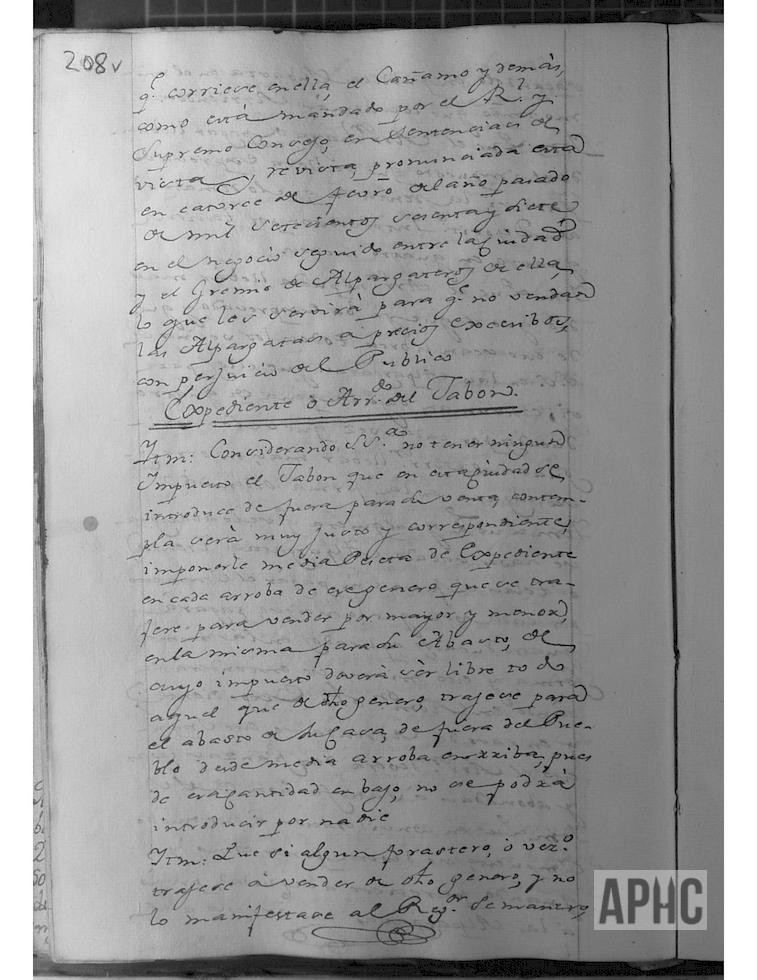 208v
q.^e corriese en ella, el Cañamo y demás,
como está mandado por el R.^l y
Supremo Consejo, en Sentencias de
vista, y revista, pronunciada esta
en catorce de Febro del año pasado
de mil setecientos sesenta y siete
en el negocio seguido entre la Ciudad
y el Gremio de Alpargateros de ella,
lo que les servirá para q.^e no vendan
las Alpargatas á precios excecibos,
con perjuicio del Publico
Expediente o Arr.^do del Jabon.
Itm: Considerando S.S.^a no tener ningun
Impuesto el Jabon que en esta Ciudad se
introduce de fuera para su venta, contem-
pla será muy justo y correspondiente,
imponerle media Peseta de Expediente
en cada arroba de ese genero que se tra-
jere para vender por mayor y menor,
en la misma para su Abasto, de
cuyo impuesto deverá ser libre todo
aquel que de dho genero, trajese para
el abasto de su Casa, de fuera del Pue-
blo desde media arroba en arriba, pues
de esa cantidad en bajo, no se podrá
introducir por nadie
Itm: Que si algun forastero, ó vez.^o
trajese á vender de dho genero, y no
lo manifestase al Reg.^or Semanero,
APHC